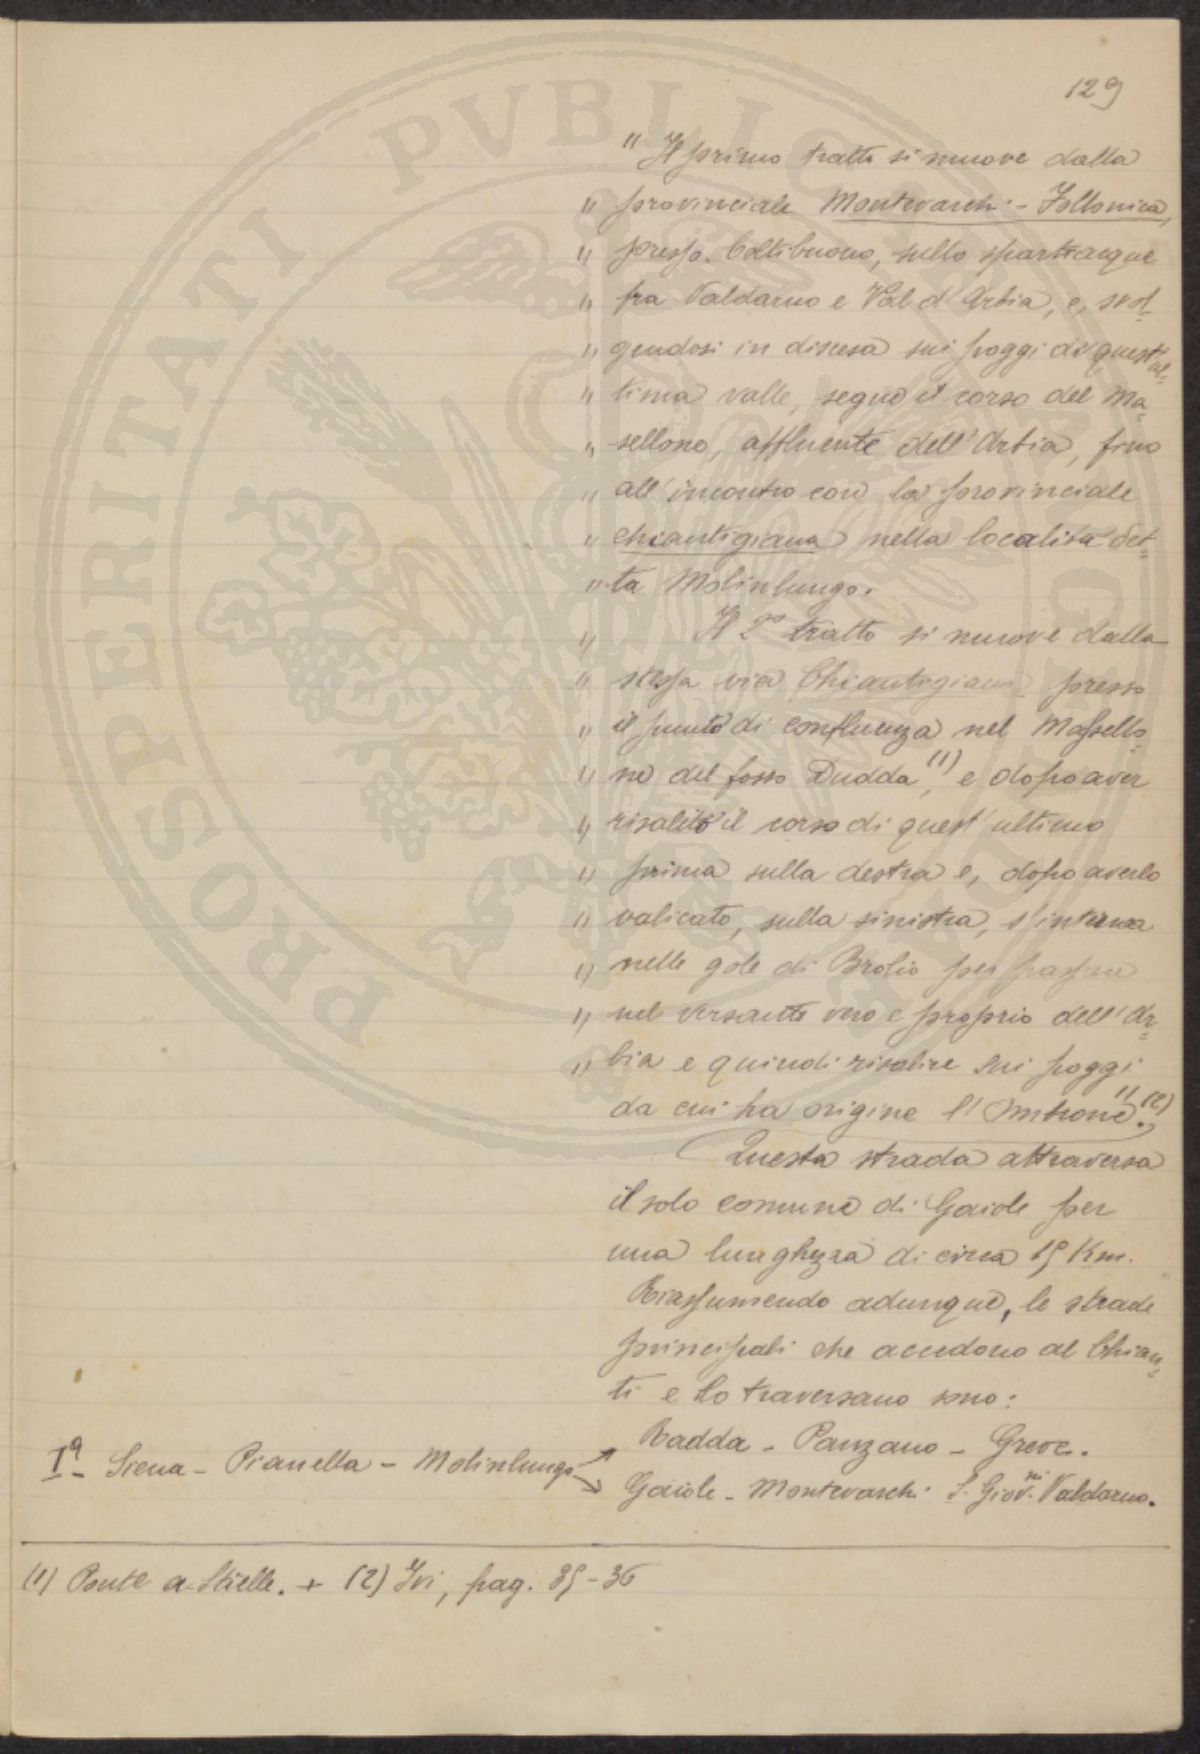 129
" Il primo tratto si muove dalla
" provinciale Montevarchi - Follonica,
" presso Coltibuono, sullo spartiacque
" fra Valdarno e Val d'Arbia, e, svol=
" gendosi in discesa sui poggi di quest'ul=
" tima valle, segue il corso del Ma=
" sellone, affluente dell'Arbia, fino
" all'incontro con la provinciale
" chiantigiana nella località det=
" ta Molinlungo.
" Il 2º tratto si muove dalla
" stessa via Chiantigiana presso
" il punto di confluenza nel Massello=
" ne del fosso Dudda (1), e dopo aver
" risalito il corso di quest'ultimo
" prima sulla destra e, dopo averlo
" valicato, sulla sinistra, s'interna
" nelle gole di Brolio per passare
" nel versante vero e proprio dell'Ar=
" bia e quindi risalire sui poggi
da cui ha origine l'Ombrone". (2)
Questa strada attraversa
il solo comune di Gaiole per
una lunghezza di circa 15 Km.
Riassumendo adunque, le strade
principali che accedono al Chian=
ti e lo traversano sono:
Iª - Siena - Pianella - Molinlungo
Radda - Panzano - Greve.
Gaiole - Montevarchi S. Giov.ni Valdarno.
(1) Ponte a Stielle. + (2) Ivi, pag. 35-36
PROSPERITATI PVBLICAE AVGENDAE